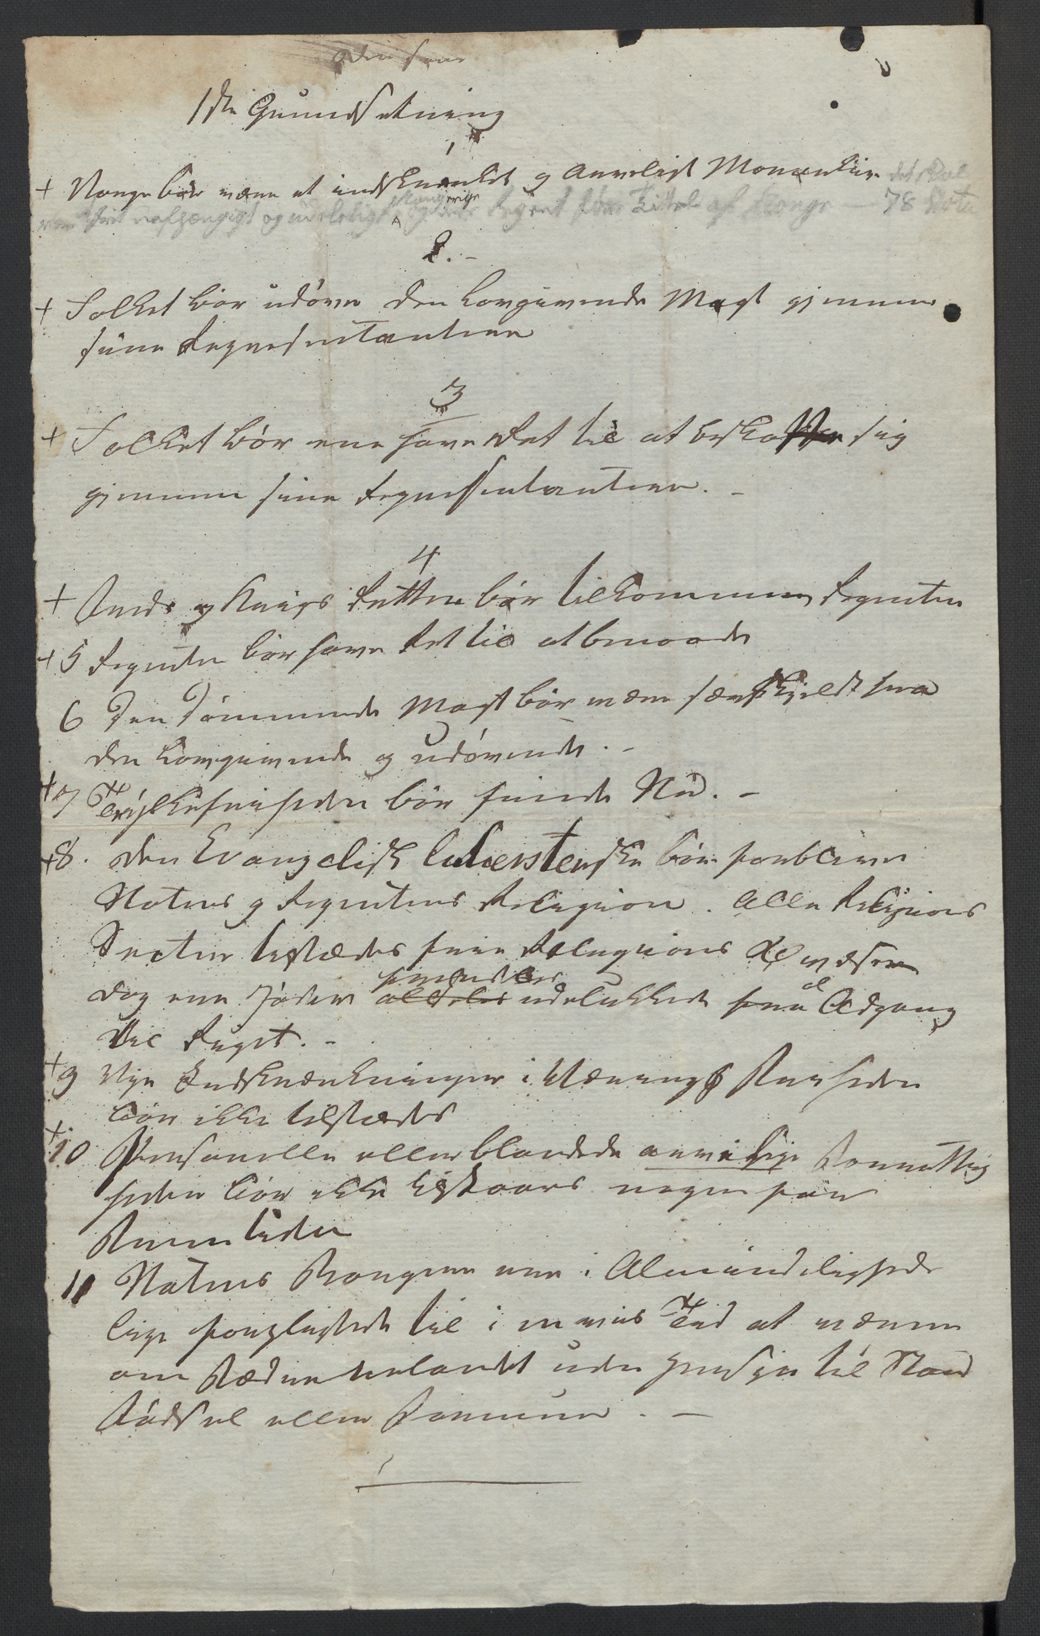 1ste Grundsætning
1
+ Norge bør være et indskrænket og Arveligt Monarkie det skal
være frit uafhængigt og udeleligt Kongerige dets Regent føre Titel af Konge — 78 Vota
2. -
+ Folket bør udøve den Lovgivende Magt gjennem
sine Repræsentantere
3
+ Folket bør ene have Ret til at beskatte sig
gjennem sine Repræsentantere. -
4
+ Freds og Krigs Retten bør tilkomme Regenten
+ 5 Regenten bør have Ret til at benaade
6 Den dømmende Magt bør være særskildt fra
den Lovgivende og udøvende. -
+ 7 Trykkefrihed bør finde Sted. -
+ 8. Den Evangelisk Lutherske bør forblive
Statens og Regentens Religion. Alle Religions
Secter tilstædes frie Religions Øvelser
dog ere Jøder fremdeles aldeles udelukkede fra al Adgang
til Riget. -
+ 9 Nye Indskrænkninger i Næringsfriheden
bør ikke tilstædes
+ 10 Personelle eller blandede arvelige Forrettig
heder bør ikke tilstaaes nogen for
Fremtiden
11 Statens Borgere ere i Almindelighed
lige forpligtede til i en vis Tid at værne
om Fædrenelandet uden Hensyn til Stand
Fødsel eller Formue. -